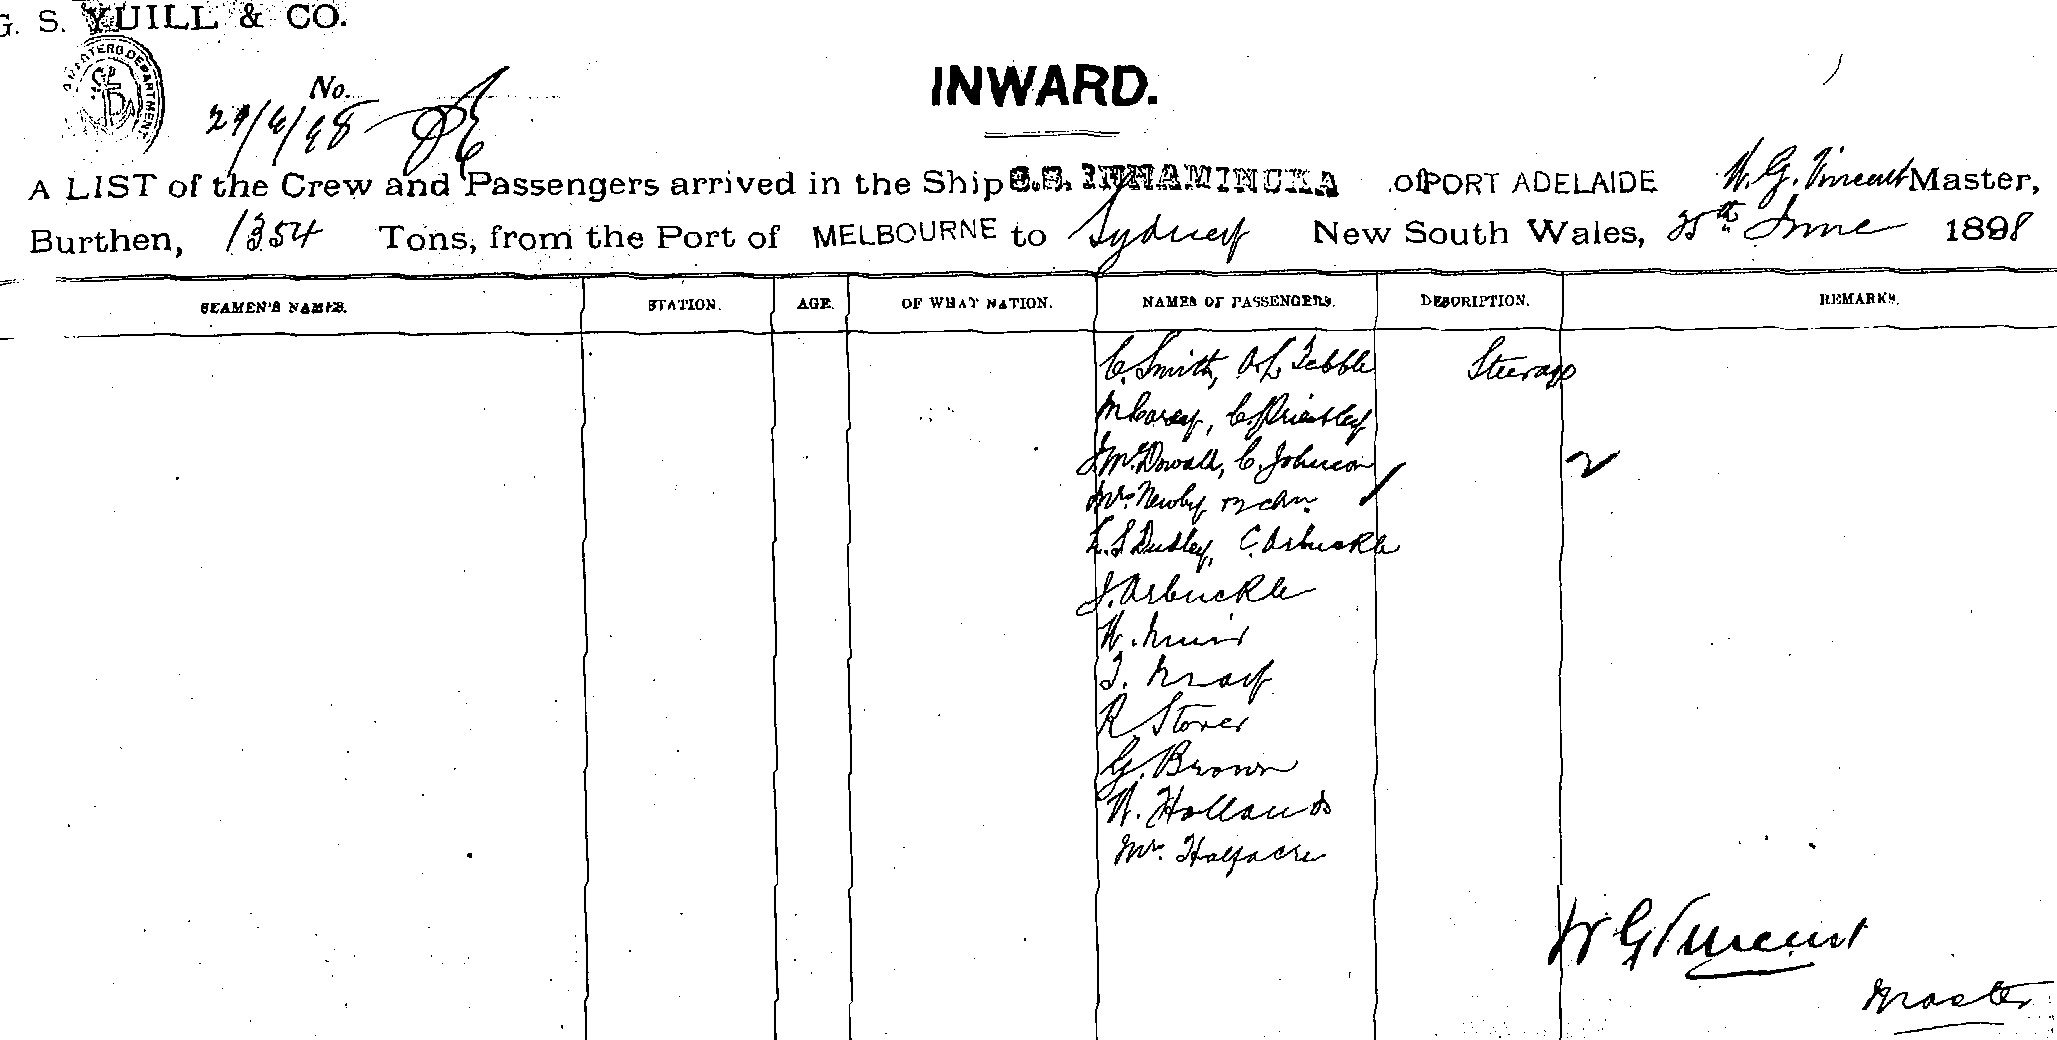 G. S. YUILL & CO.
INWARD.
No.
A LIST of the Crew and Passengers arrived in the Ship S.S. INNAMINCKA of PORT ADELAIDE W. G. Vincent Master,
Burthen, 1354 Tons, from the Port of MELBOURNE to Sydney New South Wales, 25th June 1898
SEAMEN'S NAMES. STATION. AGE. OF WHAT NATION. NAMES OF PASSENGERS. DESCRIPTION. REMARKS.
C. Smith, A. L. Tebble Steerage
M Carey, C. Priestley
J McDowall, C. Johnson
Mrs. Newby
L. S Dudley, C. Arbuckle
J. Arbuckle
W. Muir
T. May
R Storer
G. Brown
W. Hollands
Mr. Halfacre
W G Vincent
Master